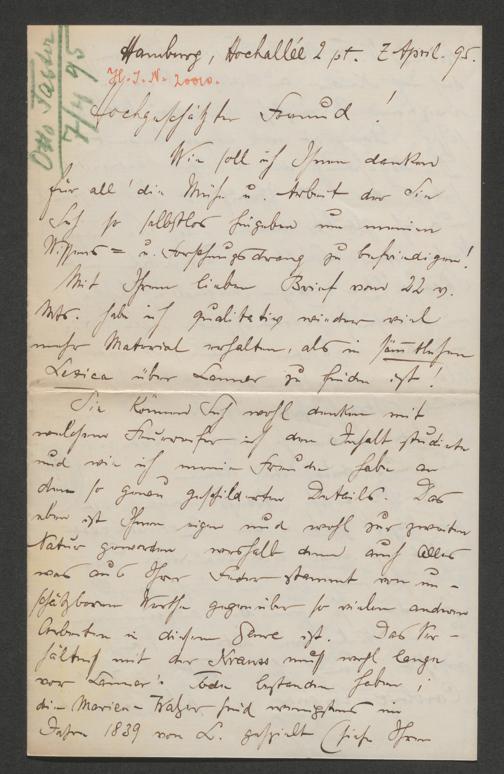 Otto Taeter
7/4 95
Hamburg, Hochallée 2 pt. 7 April. 95.
H. I. N. 20010.
Hochgeschätzter Freund!
Wie soll ich Ihnen danken
für all' die Mühe u. Arbeit der Sie
Sich so selbstlos hingeben um meinen
Wissens= u. Forschungsdrang zu befriedigen!
Mit Ihrem lieben Brief vom 22 v.
Mts. hab ich qualitativ wieder viel
mehr Material erhalten, als in sämtlichen
Lexica über Lanner zu finden ist!
Sie können Sich wohl denken mit
welchem Feuereifer ich den Inhalt studierte
und wie ich meine Freude habe an
den so genau geschilderten Details. Das
eben ist Ihnen eigen und wohl zur zweiten
Natur geworden weshalb denn auch Alles
was aus Ihrer Feder stammt von un-
schätzbarem Werthe gegenüber so vielen anderen
Arbeiten in diesem Genre ist. Das Ver-
hältniß mit der Krauss muß wohl lange
vor Lanner's Tode bestanden haben;
die Marien-Walzer sind wenigstens im
Jahre 1839 von L. gespielt (siehe Ihren